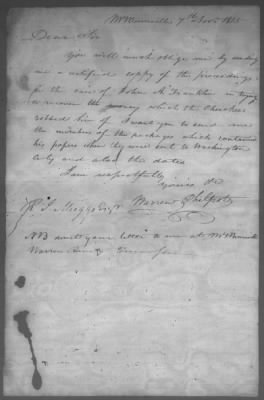 McMinnville 7th Novr
Dear Sir
You will much oblige me by sending
me a certified copy of the proceedings
in the case of John A. Franklin in trying
to recover the money which the Cherokees
robbed him of I want you to send me
the number of the packages which contained
his papers when they were sent to Washington
City and also the dates
I am respectfully
yours &c
Warren Philpot
NB direct your letter to me at McMinnville
Warren